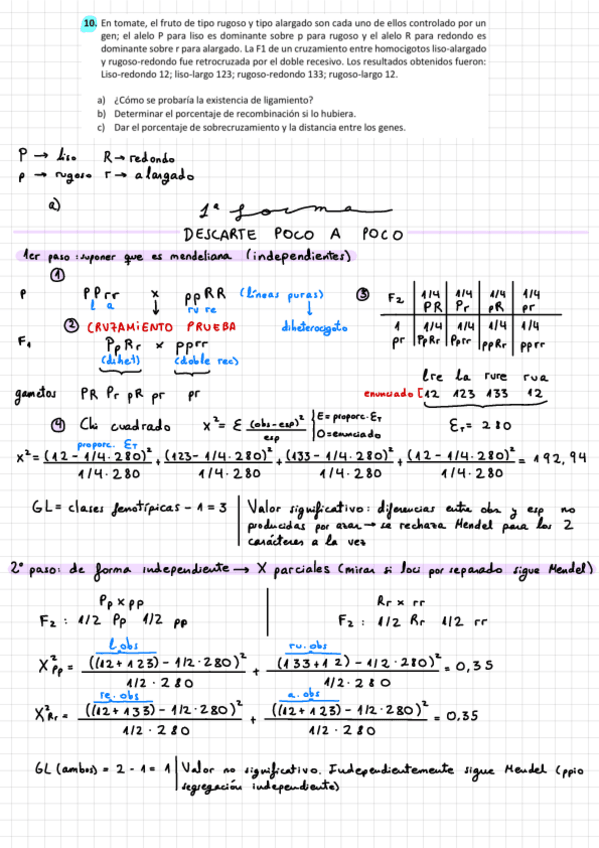 10. En tomate, el fruto de tipo rugoso y tipo alargado son cada uno de ellos controlado por un
gen; el alelo P para liso es dominante sobre p para rugoso y el alelo R para redondo es
dominante sobre r para alargado. La F1 de un cruzamiento entre homocigotos liso-alargado
y rugoso-redondo fue retrocruzada por el doble recesivo. Los resultados obtenidos fueron:
Liso-redondo 12; liso-largo 123; rugoso-redondo 133; rugoso-largo 12.
a) ¿Cómo se probaría la existencia de ligamiento?
b) Determinar el porcentaje de recombinación si lo hubiera.
c) Dar el porcentaje de sobrecruzamiento y la distancia entre los genes.
P → liso R → redondo
p → rugoso r → alargado
a) 1ª forma
DESCARTE POCO A POCO
1er paso: suponer que es mendeliana (independientes)
①
P PPrr x ppRR (líneas puras)
l a ru re ↓
② CRUZAMIENTO PRUEBA diheterocigoto
F₁ PpRr x pprr
(dihet) (doble rec)
gametos PR Pr pR pr pr
③ F₂ 1/4 PR 1/4 Pr 1/4 pR 1/4 pr
1 pr 1/4 PpRr 1/4 Pprr 1/4 ppRr 1/4 pprr
lre la rure rua
enunciado [12 123 133 12
④ Chi cuadrado x² = Σ (obs-esp)²/esp E = proporc. · Eт O = enunciado Eт = 280
proporc. Eт
x² = (12 - 1/4 · 280)²/1/4 · 280 + (123 - 1/4 · 280)²/1/4 · 280 + (133 - 1/4 · 280)²/1/4 · 280 + (12 - 1/4 · 280)²/1/4 · 280 = 192,94
GL = clases fenotípicas - 1 = 3 | Valor significativo: diferencias entre obs y esp no
producidas por azar → se rechaza Mendel para los 2
carácteres a la vez
2º paso: de forma independiente → X parciales (mirar si loci por separado sigue Mendel)
Pp x pp Rr x rr
F₂ : 1/2 Pp 1/2 pp F₂ : 1/2 Rr 1/2 rr
l. obs ru. obs
X²Pp = ((12 + 123) - 1/2 · 280)²/1/2 · 280 + (133 + 12) - 1/2 · 280)²/1/2 · 280 = 0,35
re. obs a. obs
X²Rr = ((12 + 133) - 1/2 · 280)²/1/2 · 280 + ((12 + 123) - 1/2 · 280)²/1/2 · 280 = 0,35
GL (ambos) = 2 - 1 = 1 | Valor no significativo. Independientemente sigue Mendel (ppio
segregación independiente)